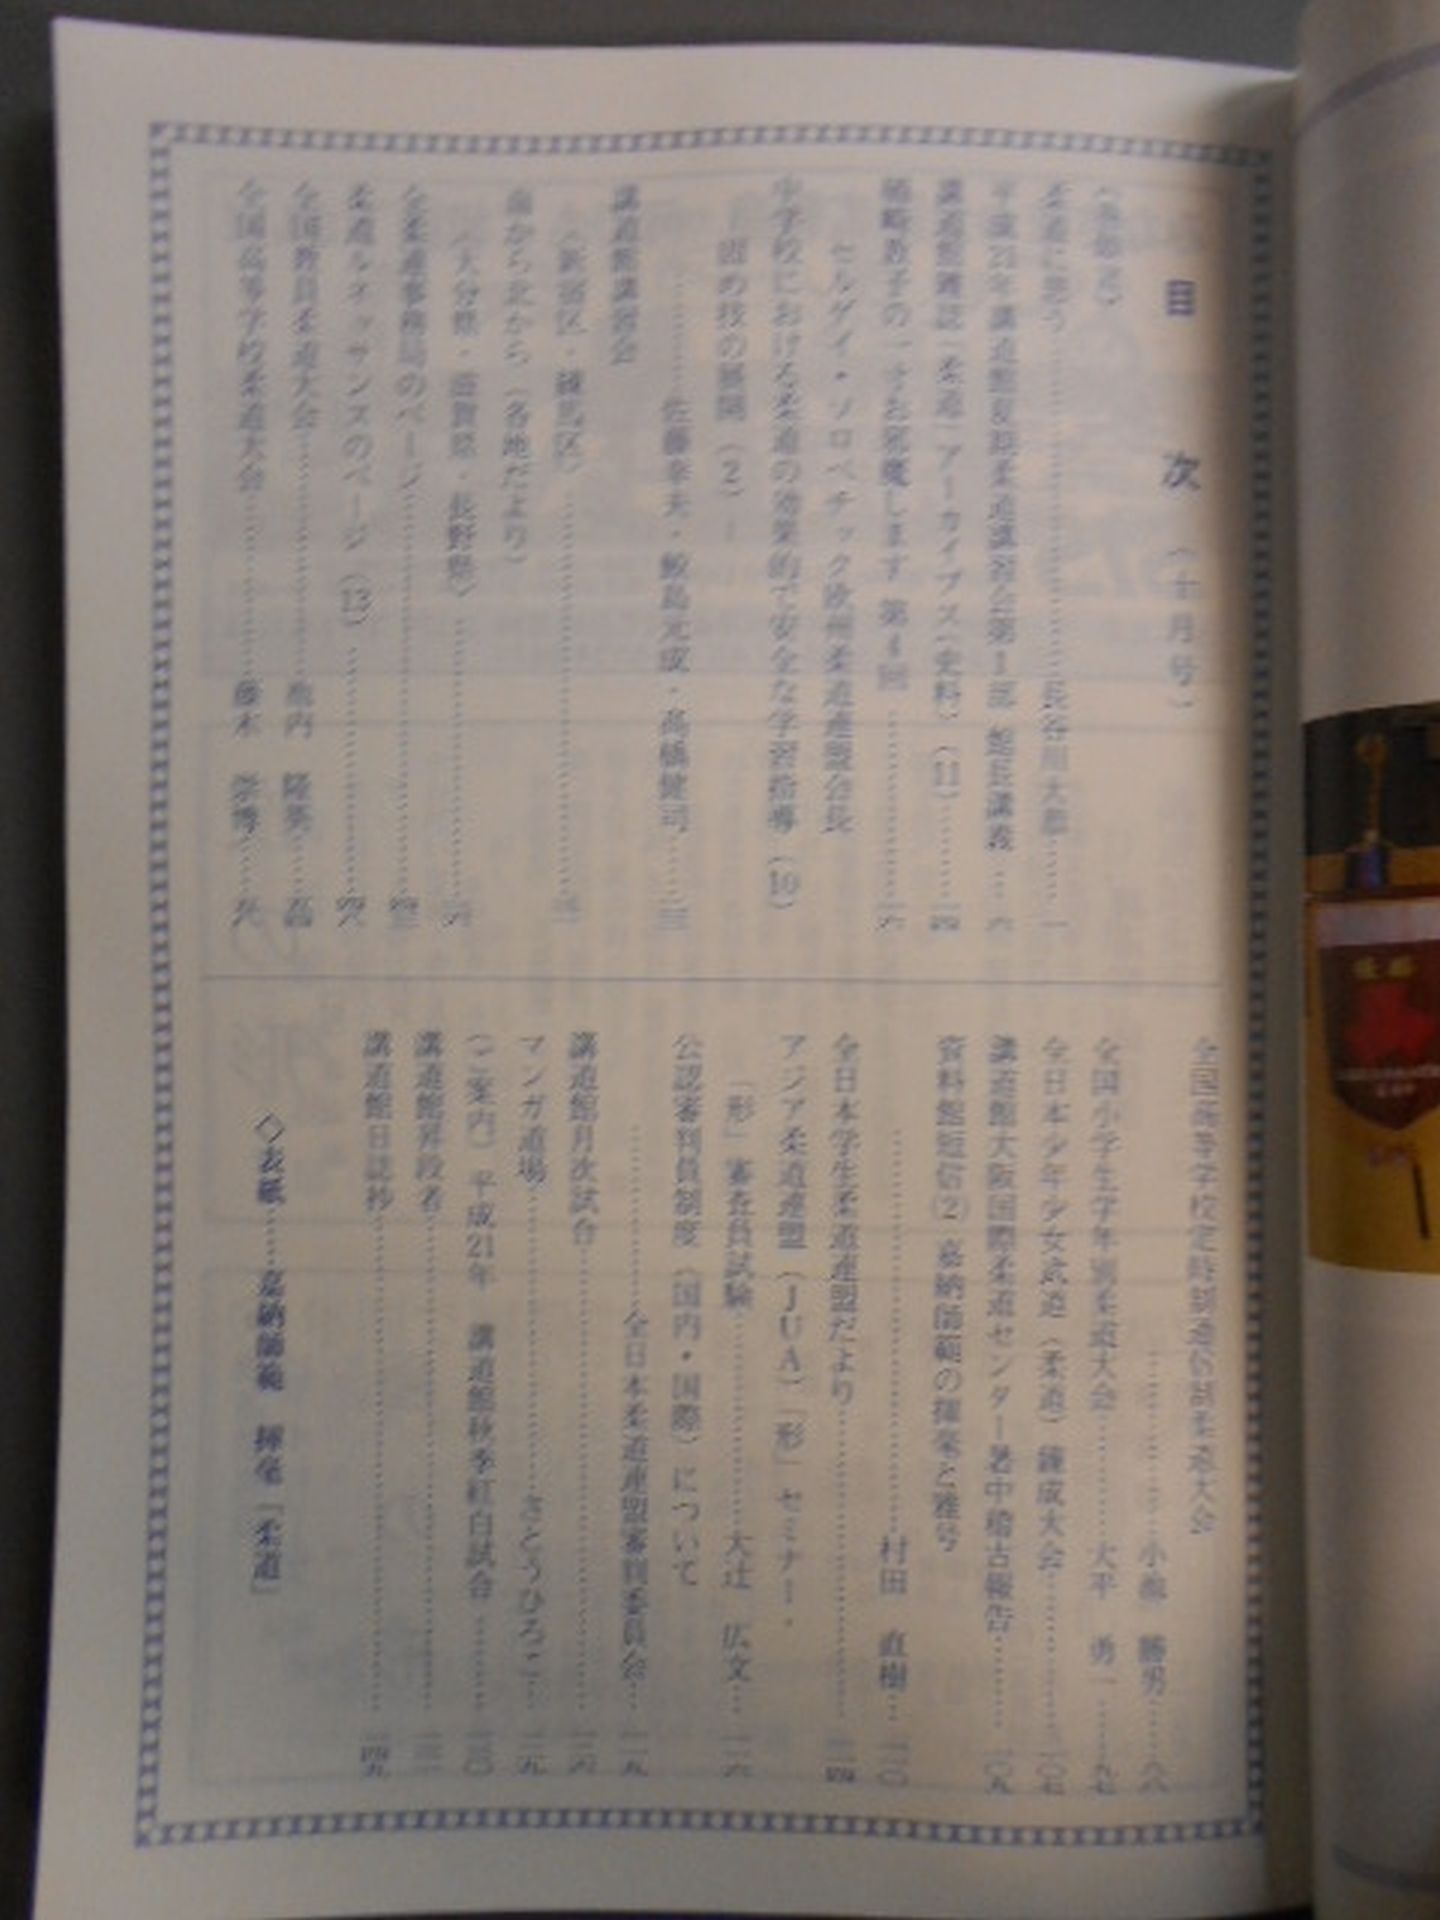 目次（十月号）
柔道に思う……長谷川大
平成21年講道館夏期柔道講習会第1部 館長講義…六
講道館雑誌「柔道」アーカイブス（史料）（11）……一四
の一寸お邪魔します 第4回……一六
セルゲイ・ソロベチック欧州柔道連盟会長
中学校における柔道の効果的で安全な学習指導（10）
固め技の展開（2）―
……佐藤幸夫・鮫島元成・高橋健司……三三
講道館講習会
〈新宿区・練馬区〉……
南から北から（各地だより）
〈大分県・滋賀県・長野県〉……
全柔連事務局のページ……
柔道ルネッサンスのページ（13）……
全国教員柔道大会……
全国高等学校柔道大会……藤木 崇博……
全国高等学校定時制通信制柔道大会
……小 勝男……八八
全国小学生学年別柔道大会……大平 勇一……九七
全日本少年少女武道（柔道）錬成大会……一〇七
講道館大阪国際柔道センター暑中稽古報告……一〇九
資料館短信（2） 嘉納師範の揮毫と雅号
……村田 直樹…一一〇
全日本学生柔道連盟だより……一一四
アジア柔道連盟（JUA）「形」セミナー・
「形」審査員試験……大辻 広文…一一六
公認審判員制度（国内・国際）について
……全日本柔道連盟審判委員会…一一九
講道館月次試合……一二六
マンガ道場……さとうひろこ…一二九
（ご案内）平成21年 講道館秋季紅白試合……一三〇
講道館昇段者……一三一
講道館日誌抄……一四九
◇表紙……嘉納師範 揮毫「柔道」